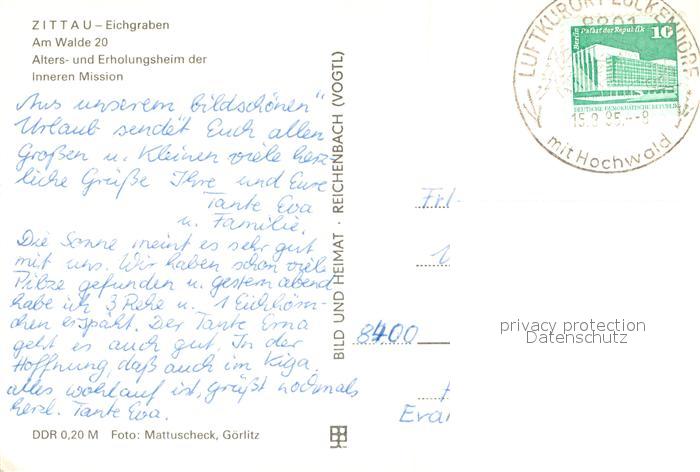 ZITTAU – Eichgraben
Am Walde 20
Alters- und Erholungsheim der
Inneren Mission
Aus unserem „bildschönen"
Urlaub sendet Euch allen
Großen u. Kleinen viele herz-
liche Grüße Ihre und Eure
Tante Eva
u. Familie.
Die Sonne meint es sehr gut
mit uns. Wir haben schon viele
Pilze gefunden u. gestern abend
habe ich 3 Rehe u. 1 Eichhörn-
chen erspäht. Der Tante Erna
geht es auch gut. In der
Hoffnung, daß auch im Kiga.
alles wohlauf ist, grüßt nochmals
herzl. Tante Eva.
DDR 0,20 M Foto: Mattuscheck, Görlitz
BILD UND HEIMAT · REICHENBACH (VOGTL)
LUFTKURORT LÜCKENDORF
8801
15.9.85.--8
mit Hochwald
Berlin Palast der Republik
10
DEUTSCHE DEMOKRATISCHE REPUBLIK
Frl.
8400
privacy protection
Datenschutz